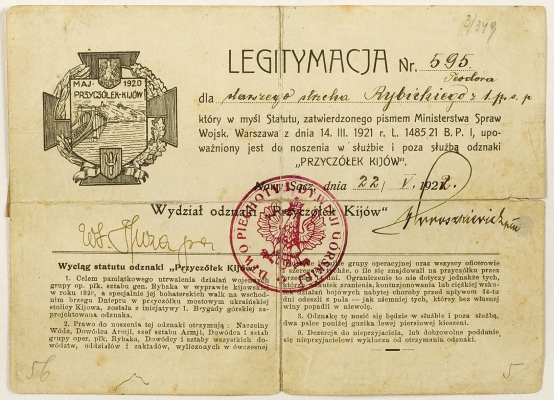 3/349
MAJ 1920
PRZYCZÓŁEK-KIJÓW
LEGITYMACJA Nr. 595
Teodora
dla starszego strzelca Rybickiego z 1. p. s. p
który w myśl Statutu, zatwierdzonego pismem Ministerstwa Spraw
Wojsk. Warszawa z dnia 14. III. 1921 r. L. 14852I B. P. I, upo-
ważniony jest do noszenia w służbie i poza służbą odznaki
„PRZYCZÓŁEK KIJÓW".
Nowy Sącz, dnia 22/ V. 1922.
Wydział odznaki „Przyczółek Kijów"
Wyciąg statutu odznaki „Przyczółek Kijów"
1. Celem pamiątkowego utrwalenia działań wojennych
grupy op. płk. sztabu gen. Rybaka w wyprawie kijowskiej
w roku 1920, a specjalnie jej bohaterskich walk na wschod-
nim brzegu Dniepru w przyczółku mostowym ukraińskiej
stolicy Kijowa, została z inicjatywy 1. Brygady górskiej za-
projektowana odznaka.
2. Prawo do noszenia tej odznaki otrzymują: Naczelny
Wódz, Dowódca Armji, szef sztabu Armji, Dowódca i sztab
grupy oper. płk. Rybaka, Dowódcy i sztaby wszystkich do-
wództw, oddziałów i zakładów, wyliczonych w ówczesnej
grupie operacyjnej oraz wszyscy oficerowie
i szeregowi tychże, o ile się znajdowali na przyczółku przez
Ograniczenie to nie dotyczy jednakże tych,
którzy skutek zranienia, kontuzjonowania lub ciężkiej wsku-
tek działań bojowych nabytej choroby przed upływem 14-tu
dni odeszli z pola — jak niemniej tych, którzy bez własnej
winy popadli w niewolę.
3. Odznakę tę nosić się będzie w służbie i poza służbą,
dwa palce poniżej guzika lewej piersiowej kieszeni.
9. Dezercja do nieprzyjaciela, lub dobrowolne poddanie
się nieprzyjacielowi wyklucza od otrzymania odznaki.
56
5